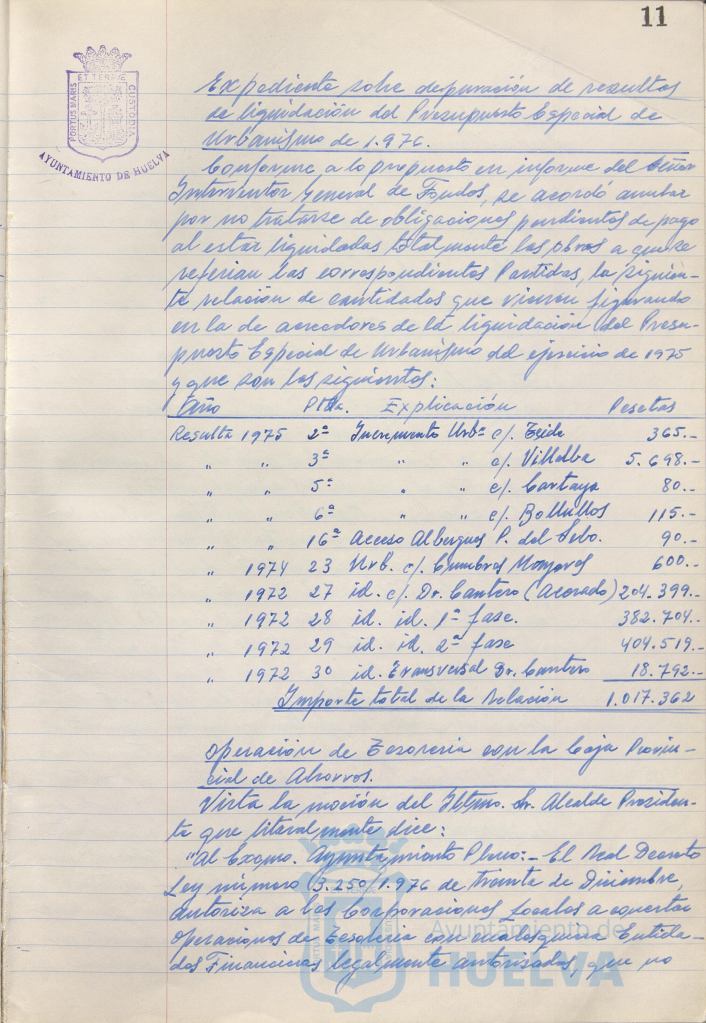 11
PORTUS MARIS
ET TERRÆ
CUSTODIA
AYUNTAMIENTO DE HUELVA
Expediente sobre depuración de resultas
de liquidación del Presupuesto Especial de
Urbanismo de 1.976.
Conforme a lo propuesto en informe del Señor
Interventor General de Fondos, se acordó anular
por no tratarse de obligaciones pendientes de pago
al estar liquidadas totalmente las obras a que se
referian las correspondientes Partidas, la siguien-
te relación de cantidades que vienen figurando
en la de acreedores de la liquidación del Presu-
puesto Especial de Urbanismo del ejercicio de 1975
y que son los siguientes:
Año Ptda. Explicación Pesetas
Resulta 1975 2ª Incremento Urbª c/. Teide 365.-
" " 3ª " " c/. Villalba 5.698.-
" " 5ª " " c/. Cartaya 80.-
" " 6ª " " c/. Bollullos 115.-
" " 16ª Acceso Albergues P. del Sebo. 90.-
" 1974 23 Urb. c/. Cumbres Mayores 600.-
" 1972 27 id. c/. Dr. Cantero (Acerado) 204.399.-
" 1972 28 id. id. 1ª fase. 382.704.-
" 1972 29 id. id. 2ª fase 404.519.-
" 1972 30 id. Transversal Dr. Cantero 18.792.-
Importe total de la Relación 1.017.362
Operación de Tesoreria con la Caja Provin-
cial de Ahorros.
Vista la moción del Iltmo. Sr. Alcalde Presiden-
te que literalmente dice:
"Al Excmo. Ayuntamiento Pleno:- El Real Decreto
Ley número 3.250/1.976 de treinta de Diciembre,
autoriza a las Corporaciones Locales a concertar
operaciones de Tesoreria con cualesquiera Entida-
des Financieras legalmente autorizadas, que no
Ayuntamiento de
HUELVA